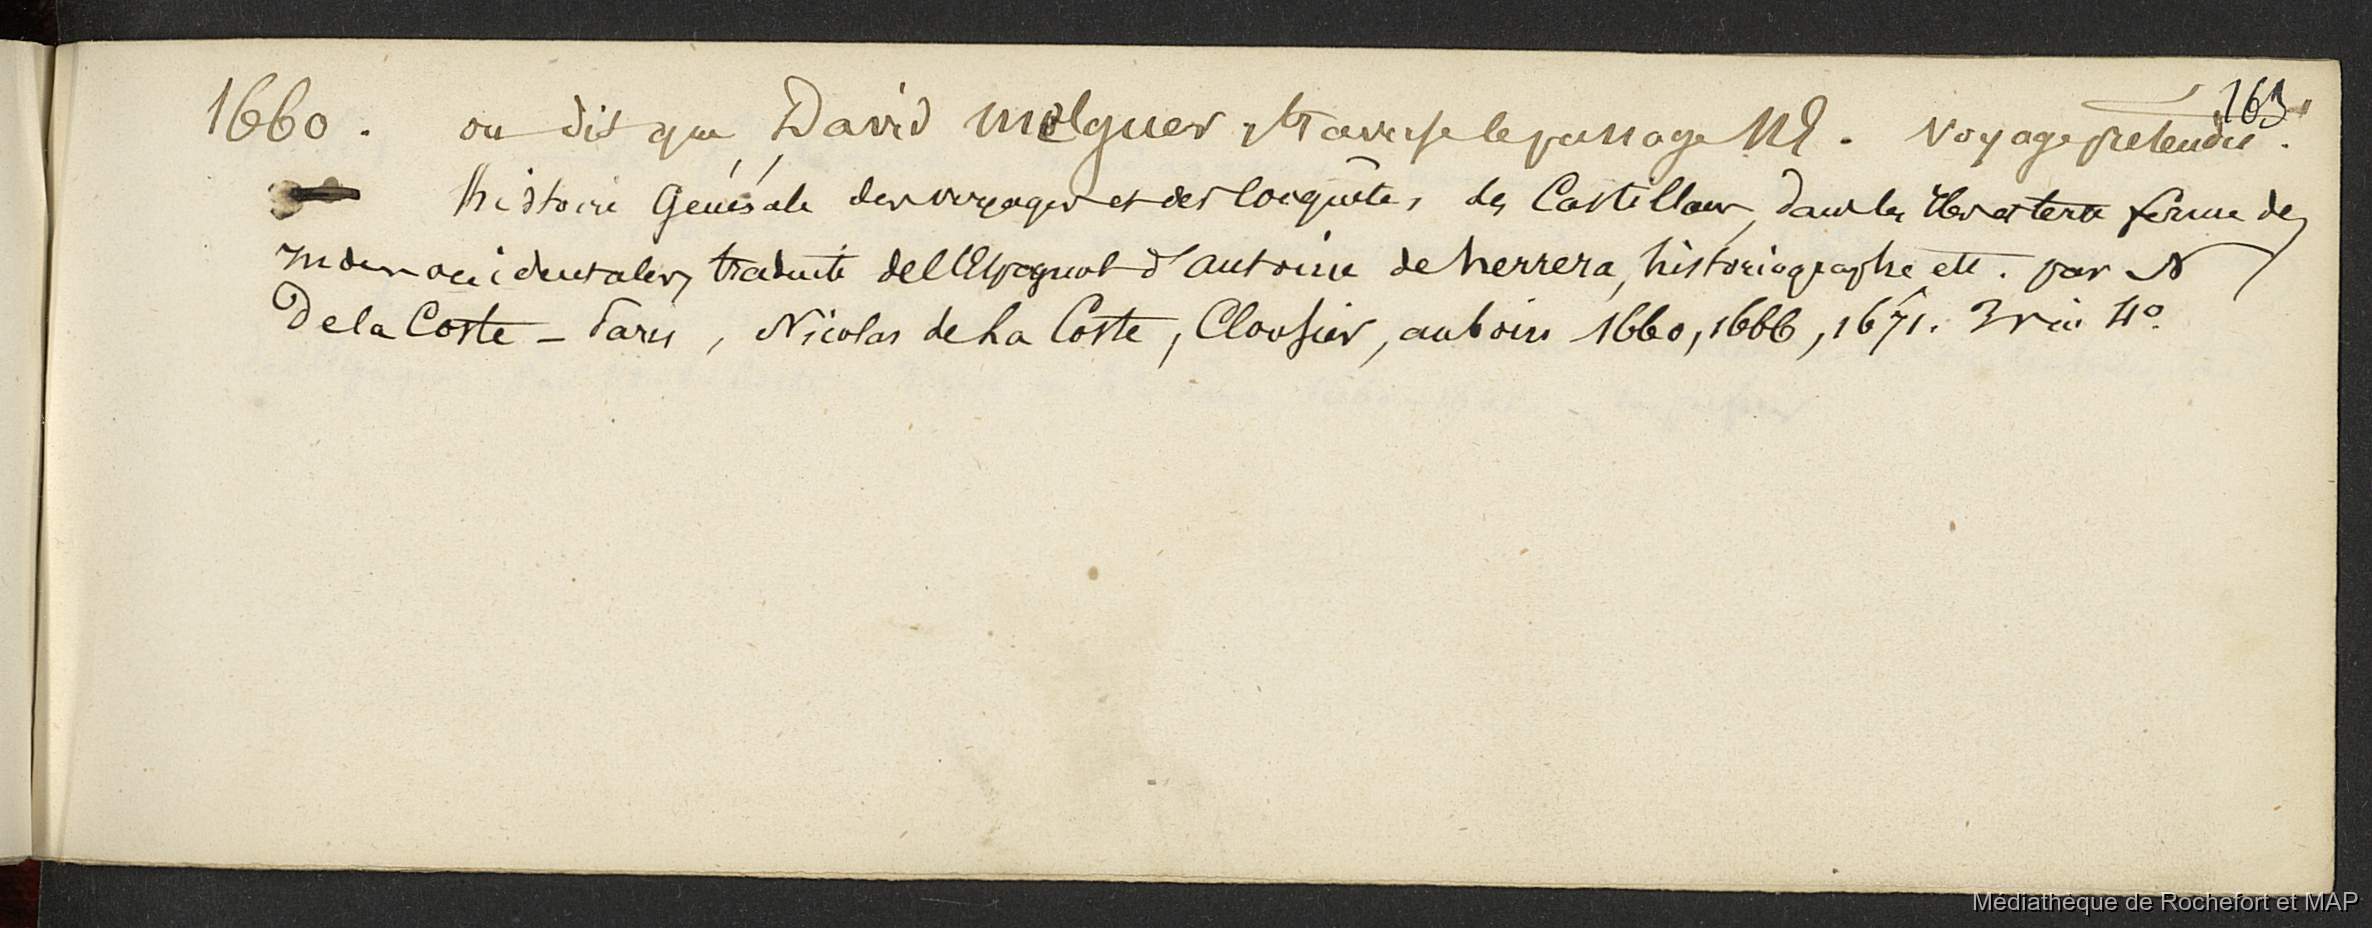 163
1660. on dit que David Melguer traverse le passage NE. Voyage prétendu.
histoire Générale des voyages et des Conquêtes des Castillans, dans les Isles et terre ferme des
Indes occidentales, traduite de l'Espagnol d'antoine de herrera, historiographe etc. par N
De la Coste – Paris, Nicolas de La Coste, Clousier, auboin 1660, 1666, 1671. 3 v in 4º.
Médiathèque de Rochefort et MAP